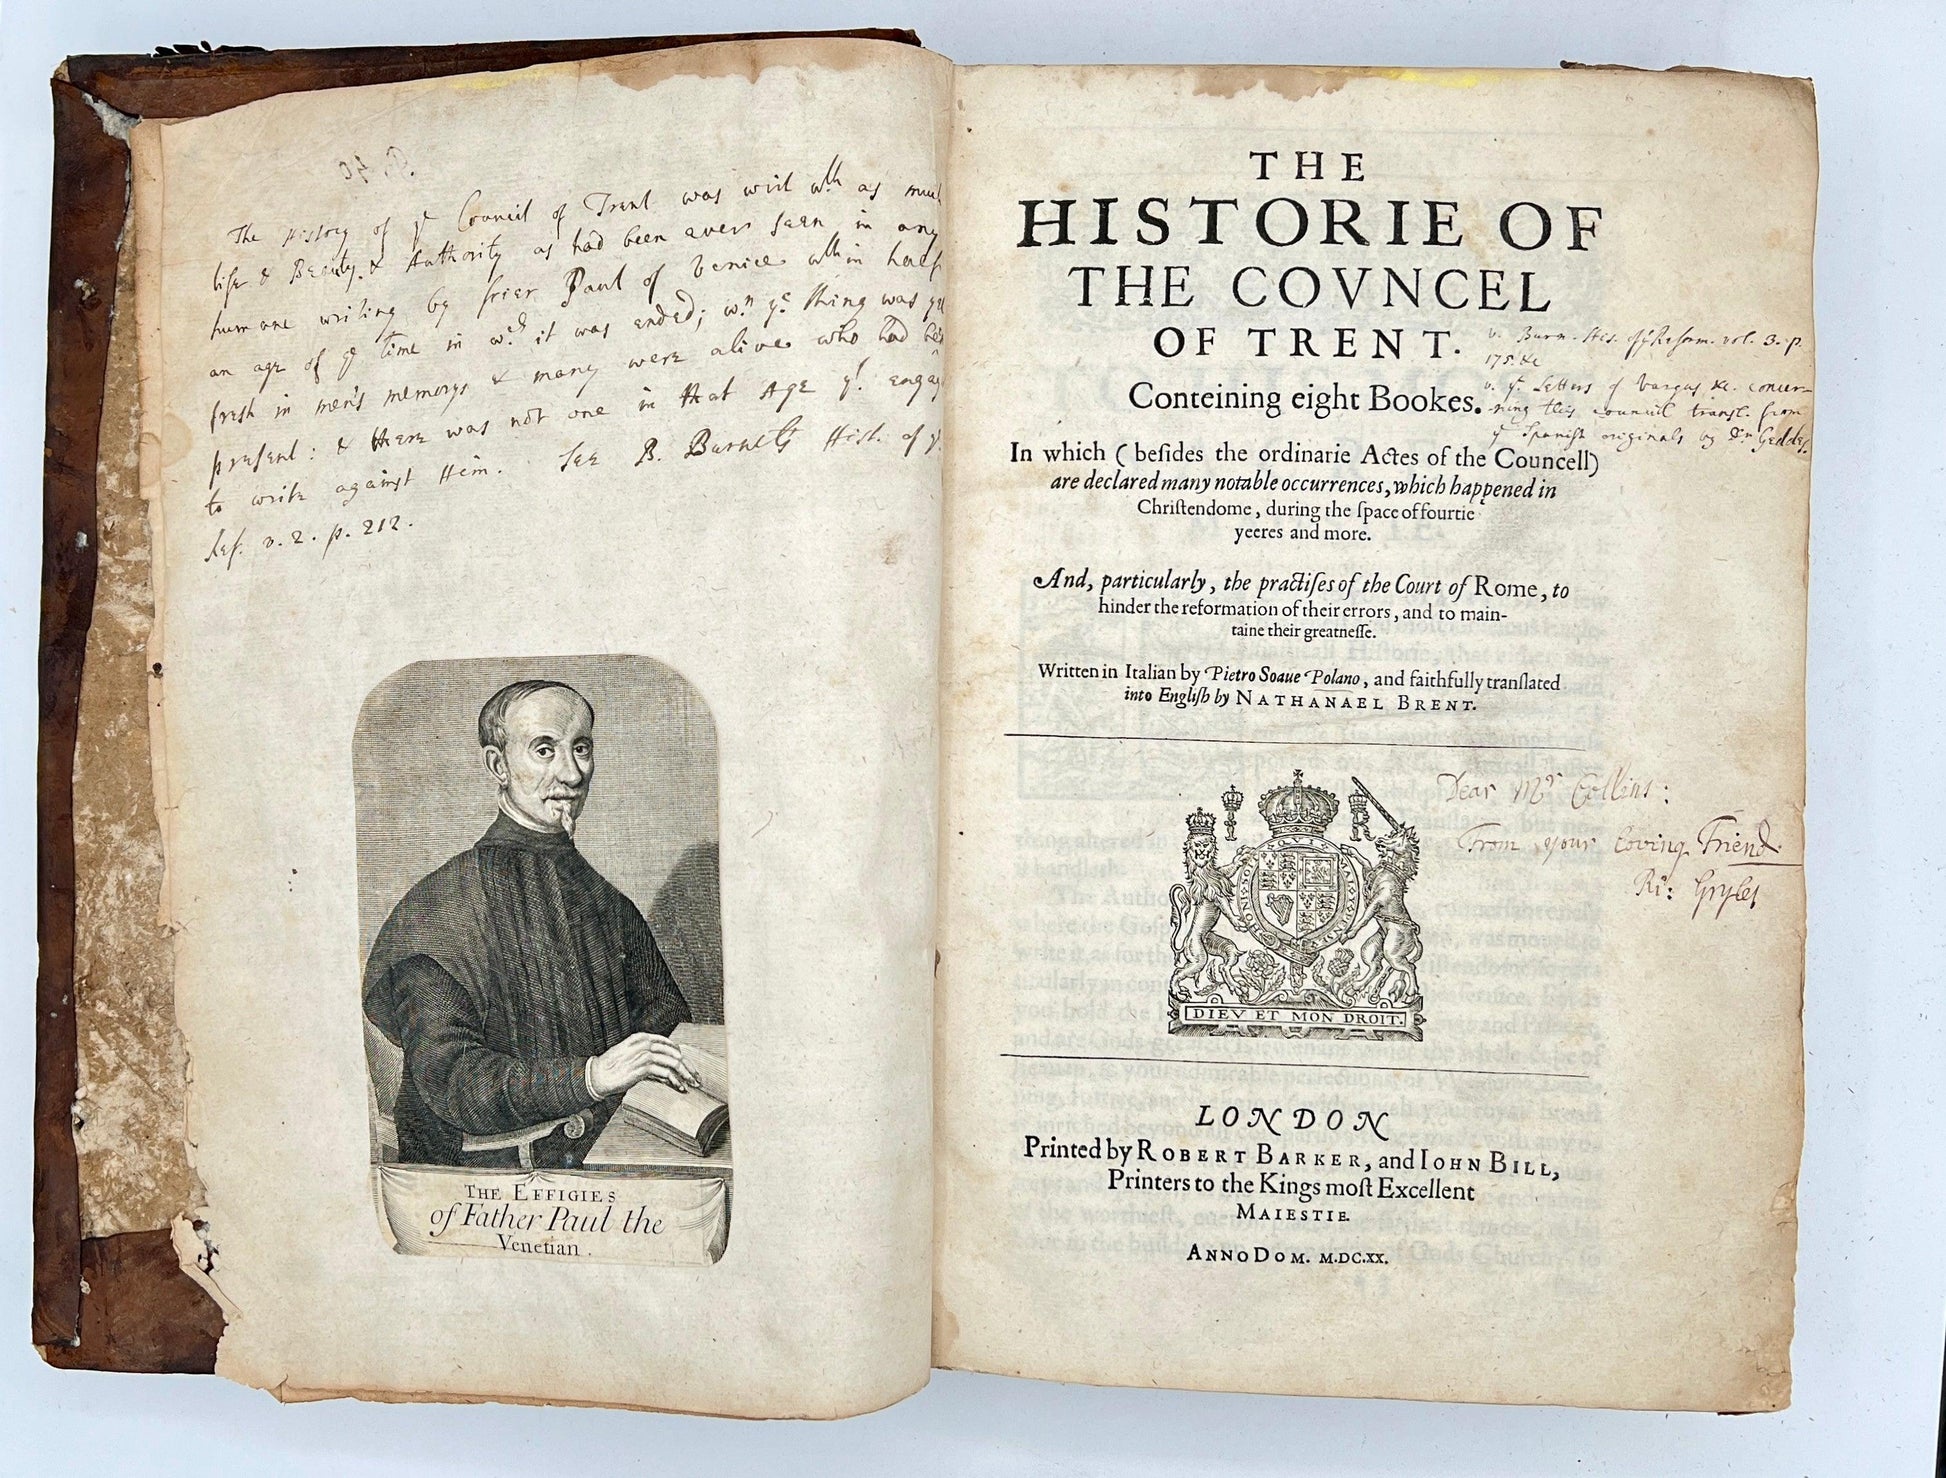 The History of yͤ Council of Trent was writ wth as much
life & Beauty & Authority as had been ever seen in any
humane writing by frier Paul of Venice wthin half
an age of yͤ time in wᶜʰ it was ended; wⁿ yᵉ thing was yet
fresh in men's memorys & many were alive who had been
present: & there was not one in that Age yᵗ engag'd
to write against Him. See B. Burnets Hist. of yͤ
Ref. v. 2. p. 212.
THE EFFIGIES
of Father Paul the
Venetian.
THE
HISTORIE OF
THE COVNCEL
OF TRENT.
Conteining eight Bookes.
v. Burn. His. of yͤ Reform. vol. 3. p.
175. &c
v. yͤ Letters of Vargas &c. concer-
ning this council transl. from
yͤ Spanish originals by Dr Geddes.
In which (beſides the ordinarie Actes of the Councell)
are declared many notable occurrences, which happened in
Chriſtendome, during the ſpace of fourtie
yeeres and more.
And, particularly, the practiſes of the Court of Rome, to
hinder the reformation of their errors, and to main-
taine their greatneſſe.
Written in Italian by Pietro Soaue Polano, and faithfully tranſlated
into Engliſh by NATHANAEL BRENT.
I R
HONI SOIT QVI MAL Y PENSE
DIEV ET MON DROIT.
Dear Mr Collins:
From your loving Friend
Ri: Gryles
LONDON
Printed by ROBERT BARKER, and IOHN BILL,
Printers to the Kings moſt Excellent
MAIESTIE.
ANNO DOM. M.DC.XX.